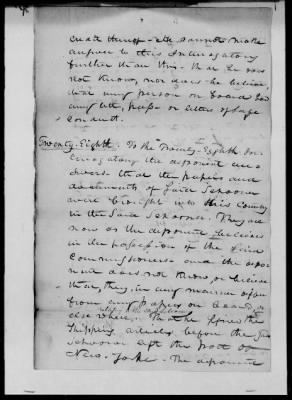 cannot make
answer to this Interrogatory
further than this - That he does
not know, nor does he believe,
that any person on board had
any pass or letter of safe
conduct.
Twenty-Eighth. To the Twenty-Eighth In-
terrogatory the deponent ans-
wers that the papers and
documents of said Schooner
were brought into this County
in the said Schooner. They are
now as the deponent believes
in the possession of the Prize
Commissioners and the depo-
nent does not know or believe
that they, in any manner
from any papers on board, or
else where. That he signed the
Shipping articles before the said
Schooner left the port of
New-York. The deponent